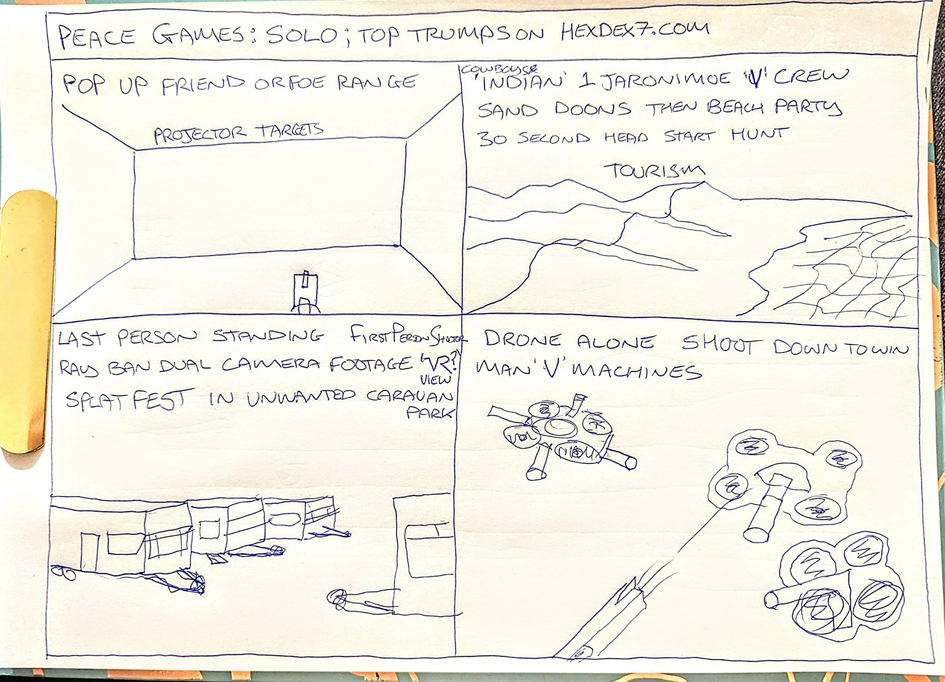 PEACE GAMES: SOLO; TOP TRUMPS ON HEXDEX7.COM
POP UP FRIEND OR FOE RANGE
PROJECTOR TARGETS
COWBOYSE
'INDIAN' 1 JARONIMOE 'V' CREW
SAND DOONS THEN BEACH PARTY
30 SECOND HEAD START HUNT
TOURISM
LAST PERSON STANDING FIRST PERSON SHOOTER
RAY BAN DUAL CAMERA FOOTAGE 'VR?'
VIEW
SPLAT FEST IN UNWANTED CARAVAN
PARK
DRONE ALONE SHOOT DOWN TO WIN
MAN 'V' MACHINES